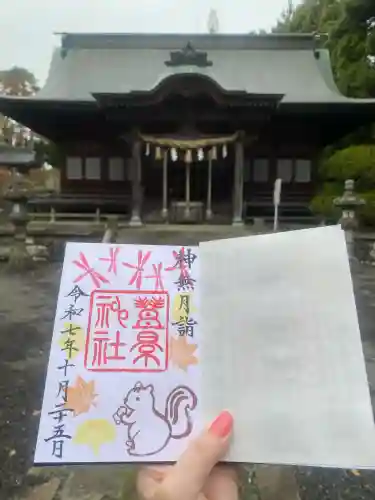 神無月詣
豐景
神社
令和七年十月二十五日